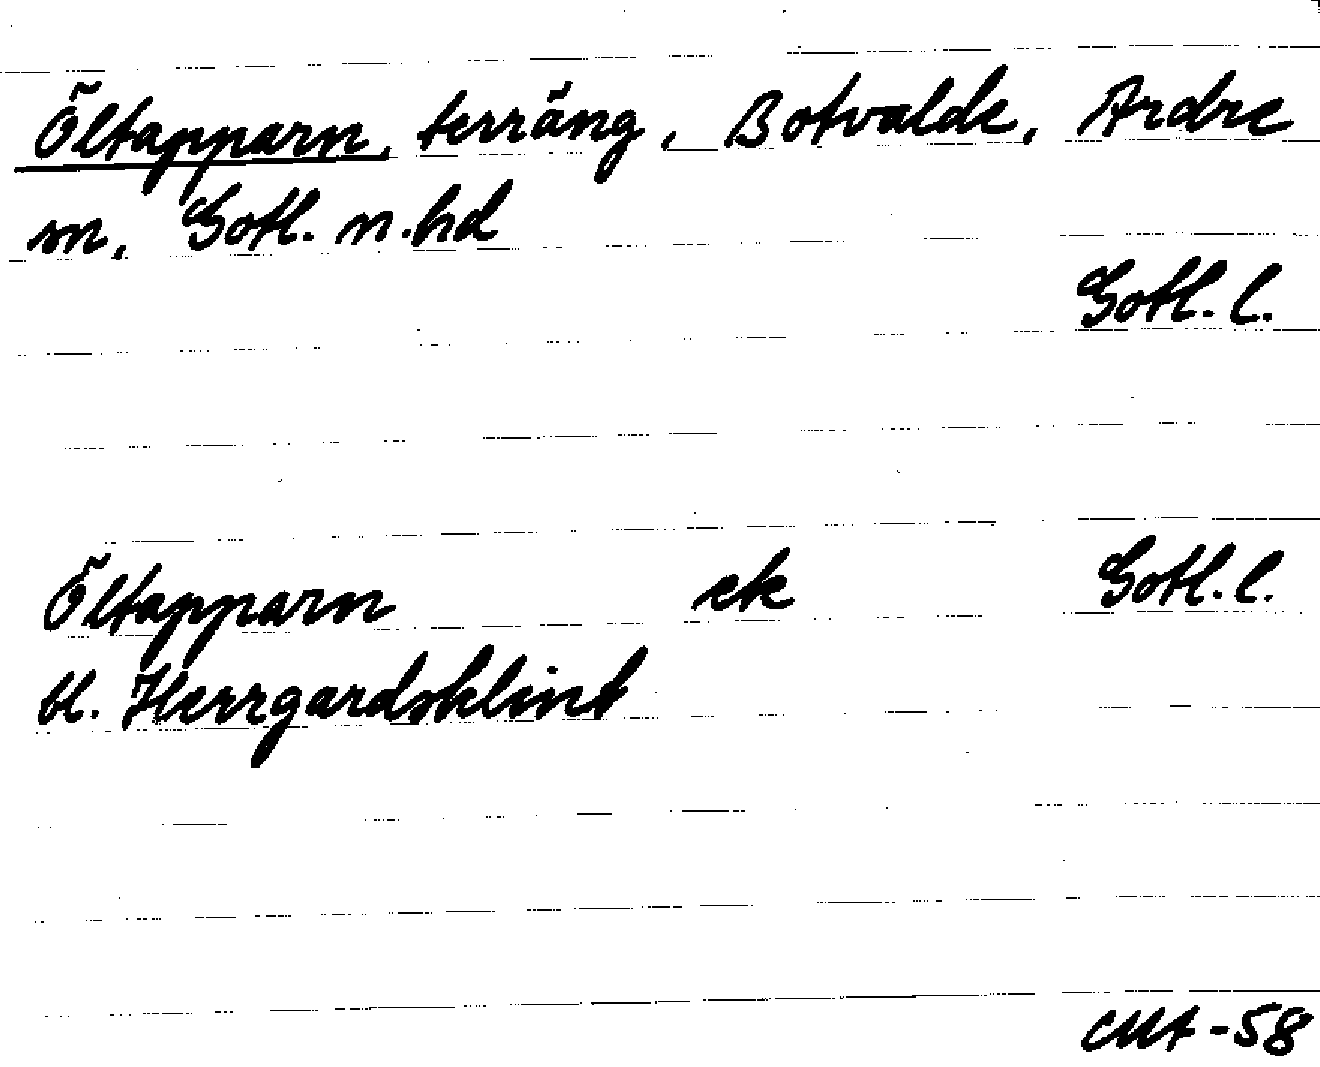 Öltapparn, terräng, Botvalde, Ardre
sn, Gotl. n. hd
Gotl. l.
Öltapparn ek Gotl. l.
bl. Herrgardsklint
-58